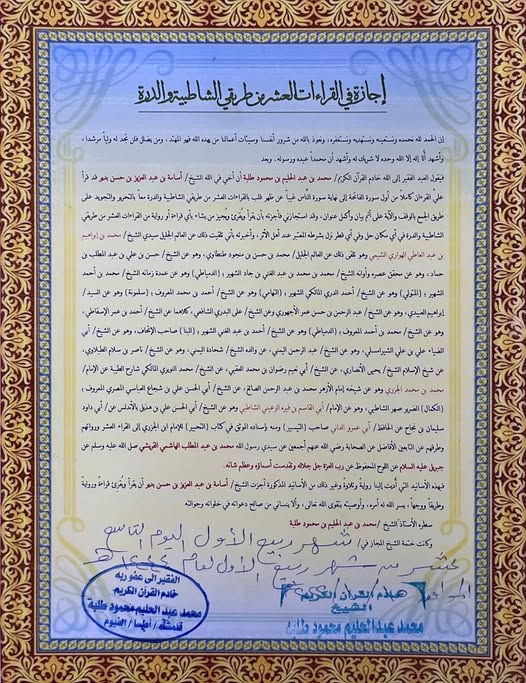 إجازة في القراءات العشر من طريقي الشاطبية والدرة
إن الحمد لله نحمده ونستعينه ونستهديه ونستغفره، ونعوذ بالله من شرور أنفسنا وسيئات أعمالنا من يهده الله فهو المهتد، ومن يضلل فلن تجد له ولياً مرشدا،
وأشهد ألا إله إلا الله وحده لا شريك له وأشهد أن محمداً عبده ورسوله، بعد
فيقول العبد الفقير إلى الله خادم القرآن الكريم/ محمد بن عبد الحليم بن محمود طلبة أن أخي في الله الشيخ/ أسامة بن عبد العزيز بن حسن بدير قد قرأ
علي القرءان كاملاً من أول سورة الفاتحة إلى نهاية سورة الناس غيباً عن ظهر قلب بالقراءات العشر من طريقي الشاطبية والدرة معاً بالتحرير والتجويد على
طريق الجمع بالوقف والآية على أتم بيان وأكمل عنوان، وقد استجازني فأجزته بأن يقرأ ويقرئ ويجيز من يشاء بأي قراءة أو رواية من القراءات العشر من طريقي
الشاطبية والدرة في أي مكان حل وفي أي قطر نزل بشرطه المعتبر عند أهل الأثر، وأخبرته بأني تلقيت ذلك عن العالم الجليل سيدي الشيخ/ محمد بن إبراهيم
بن عبد العاطي الهواري الشيمي وهو تلقى ذلك عن العالم الجليل/ محمد بن حسن بن منجود طنطاوي، وهو عن الشيخ/ حسن بن علي بن عبد المطلب بن
حماد، وهو عن محقق عصره وأوانه الشيخ/ محمد بن محمد بن عبد الغني بن جاد الشهير، (الدمياطي) وهو عن عمدة زمانه الشيخ/ محمد بن أحمد
الشهير، (المتولي) وهو عن الشيخ/ أحمد الدري المالكي الشهير، (التهامي) وهو عن الشيخ/ أحمد بن محمد المعروف، (سلمونة) وهو عن السيد/
إبراهيم العبيدي، وهو عن الشيخ/ عبد الرحمن بن حسن بن عمر الأجهوري وعن الشيخ/ علي البدري الشافعي، كلاهما عن الشيخ/ أحمد بن عمر الإسقاطي،
وهو عن الشيخ/ محمد بن أحمد المعروف، (الدمياطي) وهو عن الشيخ/ أحمد بن عبد الغني الشهير، (البنا) صاحب الإتحاف، وهو عن الشيخ/ أبي
الضياء علي بن علي الشبراملسي، وهو عن الشيخ/ عبد الرحمن اليمني، وهو عن والده الشيخ/ شحاذة اليمني، وهو عن الشيخ/ ناصر بن سالم الطبلاوي،
عن شيخ الإسلام الشيخ/ يحيى الأنصاري، عن الشيخ/ أبي نعيم رضوان بن محمد العقبي، عن الشيخ/ محمد بن محمد النويري المالكي شارح الطيبة عن الإمام/
محمد بن محمد الجزري وهو عن شيخه إمام الأزهر محمد بن عبد الرحمن الصائغ، عن الشيخ/ أبي الحسن علي بن شجاع العباسي المصري المعروف،
(الكمال) الضرير صهر الشاطبي، وهو عن الإمام/ أبي القاسم بن فيره الرعيني الشاطبي وهو عن الشيخ/ أبي الحسن علي بن هذيل بالأندلس عن/ أبي داود
سليمان بن نجاح عن الحافظ/ أبي عمرو الداني صاحب (التيسير) ومنه بإسناده الموثق في كتاب (التحبير) للإمام ابن الجزري إلى القراء العشر ورواتهم
وطرقهم عن التابعين الأفاضل عن الصحابة رضي الله عنهم أجمعين عن سيدي رسول الله محمد بن عبد المطلب الهاشمي القريشي صلى الله عليه وسلم عن
جبريل عليه السلام عن اللوح المحفوظ عن رب العزة جل جلاله وتقدست أسماؤه وعظم شانه.
فبهذه الأسانيد التي أدت إلينا رواية وتلاوة وغير ذلك من الأسانيد المذكورة أجزت الشيخ/ أسامة بن عبد العزيز بن حسن بدير أن يقرأ ويقرئ قراءة ورواية
وطريقاً ووجهاً، يسر الله له أمره، وأوصيته بتقوى الله تعالى، وألا ينساني من صالح دعواته في خلواته وجلواته
سطره الأستاذ الشيخ/ محمد بن عبد الحليم بن محمود طلبة
وكانت ختمة الشيخ المجاز في/ شهر ربيع الأول اليوم التاسع
عشر من شهر ربيع الأول لعام
خادم القرآن الكريم
الشيخ
محمد عبد الحليم محمود طلبة
الفقير إلى عفو ربه
خادم القرآن الكريم
محمد عبد الحليم محمود طلبة
قلمشاه / إطسا / الفيوم